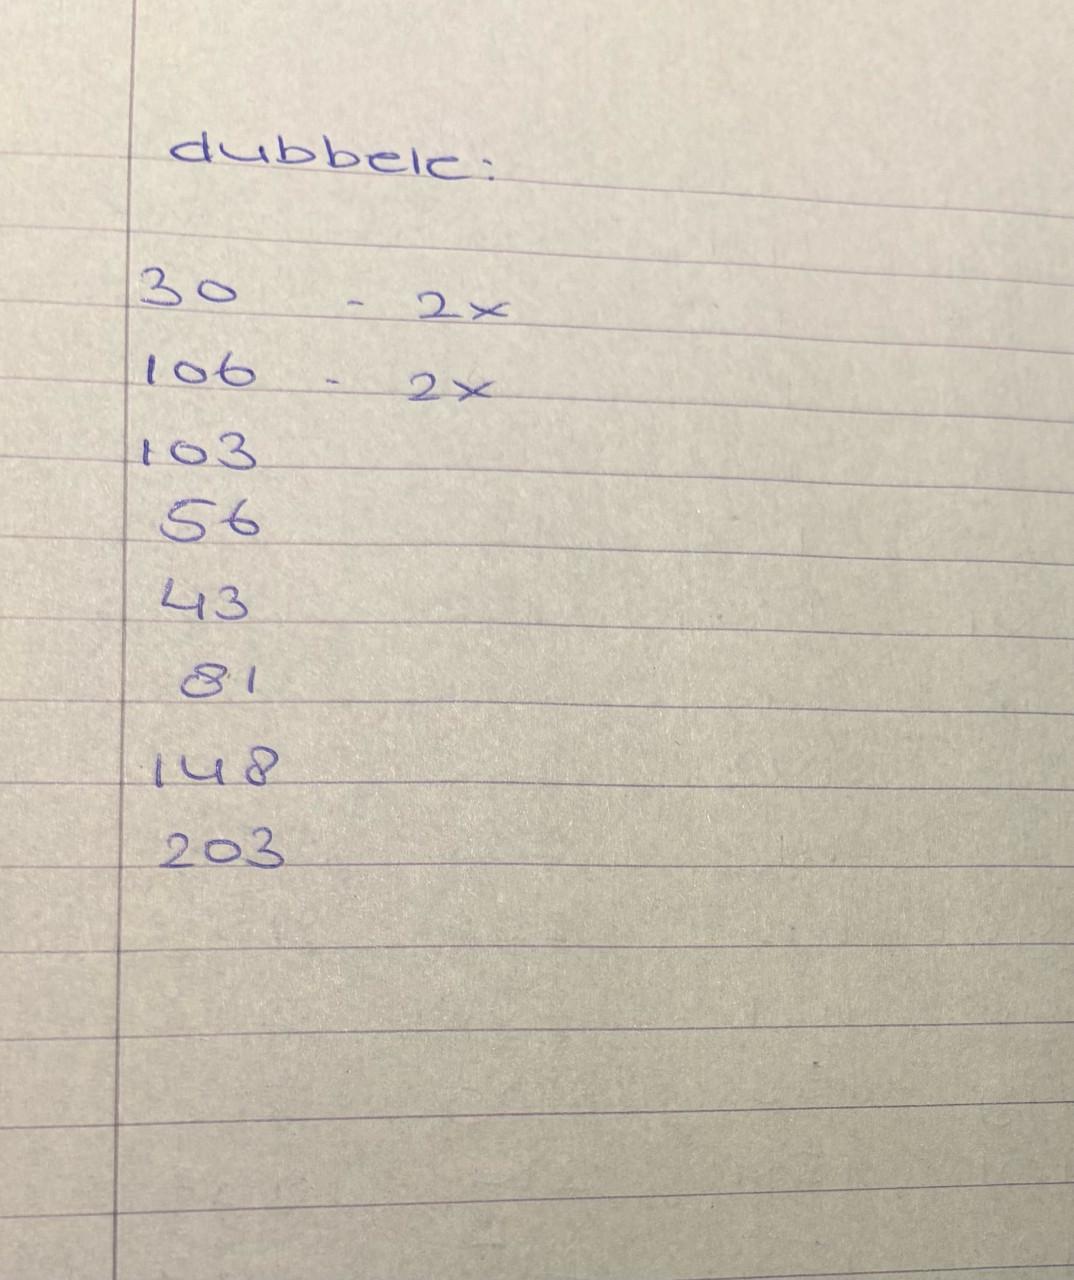 dubbele:
30 - 2x
106 - 2x
103
56
43
81
148
203